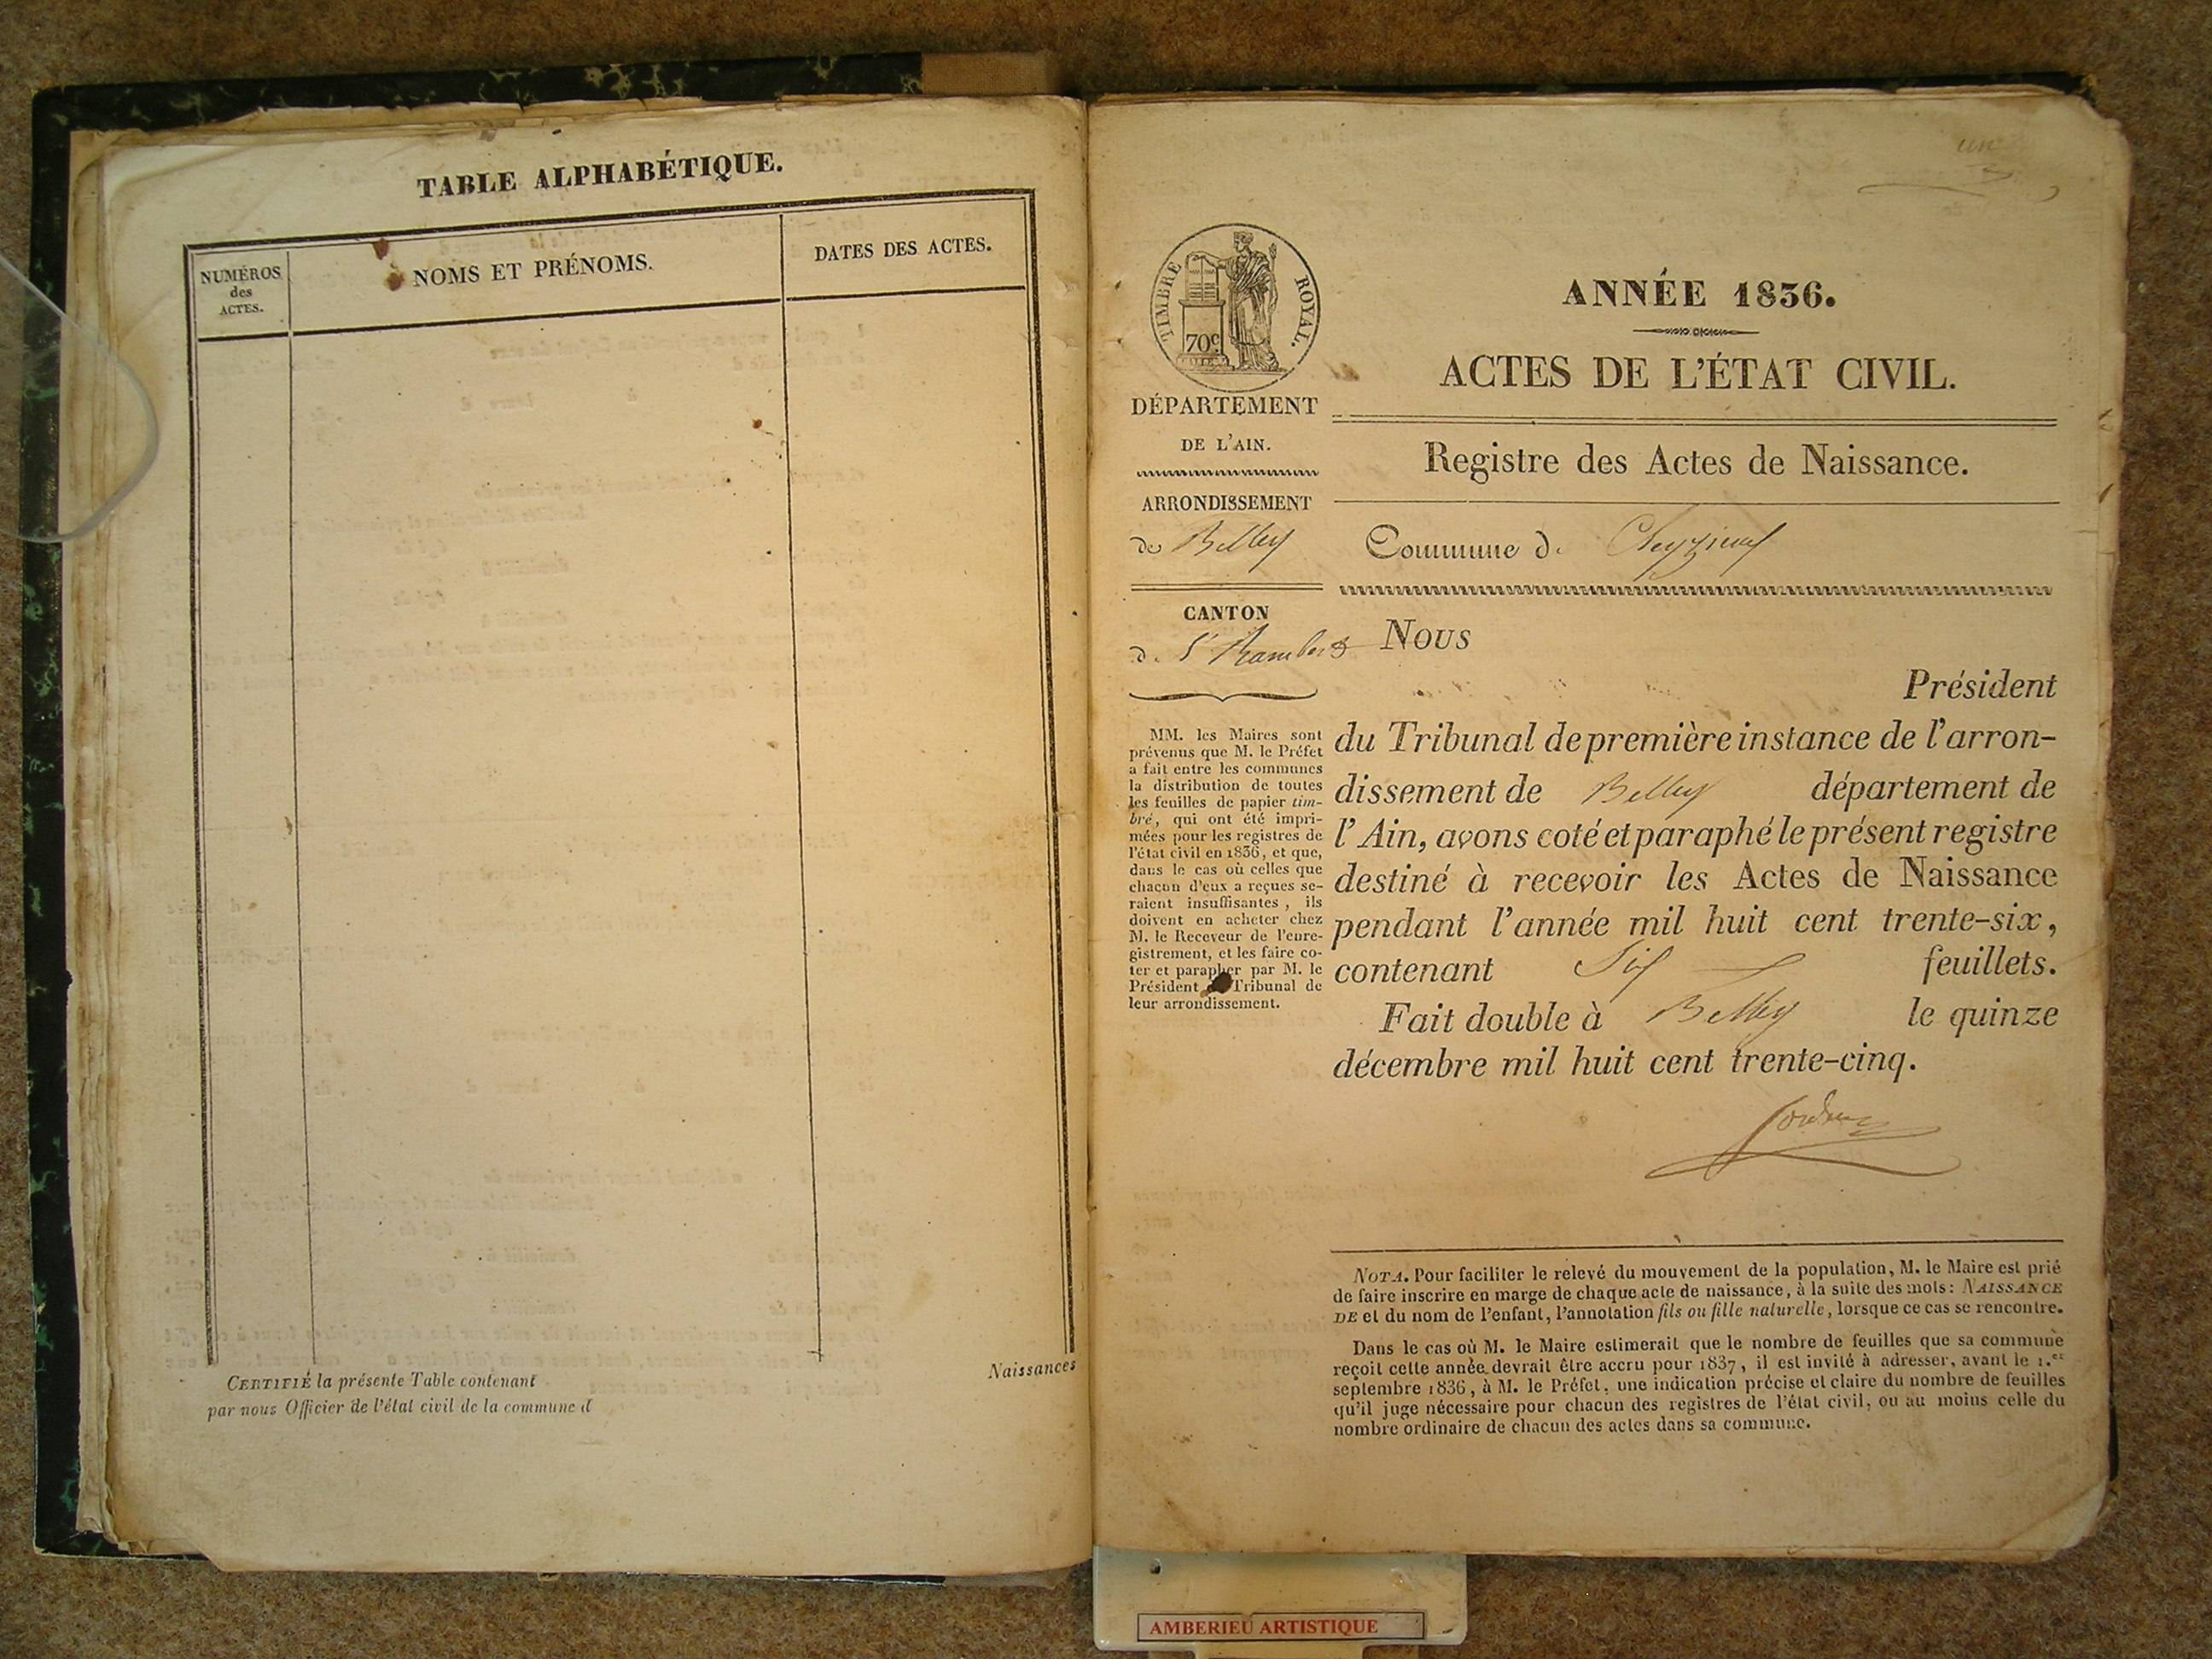 TABLE ALPHABÉTIQUE.
NUMÉROS
des
ACTES.
NOMS ET PRÉNOMS.
DATES DES ACTES.
CERTIFIÉ la présente Table contenant
par nous Officier de l'état civil de la commune d
Naissances
un
TIMBRE ROYAL.
70c
DÉPARTEMENT
DE L'AIN.
ARRONDISSEMENT
de Belley
CANTON
de St Rambert
MM. les Maires sont
prévenus que M. le Préfet
a fait entre les communes
la distribution de toutes
les feuilles de papier tim-
bré, qui ont été impri-
mées pour les registres de
l'état civil en 1836, et que,
dans le cas où celles que
chacun d'eux a reçues se-
raient insuffisantes, ils
doivent en acheter chez
M. le Receveur de l'enre-
gistrement, et les faire co-
ter et parapher par M. le
Président Tribunal de
leur arrondissement.
ANNÉE 1836.
ACTES DE L'ÉTAT CIVIL.
Registre des Actes de Naissance.
Commune de
Nous
Président
du Tribunal de première instance de l'arron-
dissement de Belley département de
l'Ain, avons coté et paraphé le présent registre
destiné à recevoir les Actes de Naissance
pendant l'année mil huit cent trente-six,
contenant Six feuillets.
Fait double à Belley le quinze
décembre mil huit cent trente-cinq.
NOTA. Pour faciliter le relevé du mouvement de la population, M. le Maire est prié
de faire inscrire en marge de chaque acte de naissance, à la suite des mots: NAISSANCE
DE et du nom de l'enfant, l'annotation fils ou fille naturelle, lorsque ce cas se rencontre.
Dans le cas où M. le Maire estimerait que le nombre de feuilles que sa commune
reçoit cette année devrait être accru pour 1837, il est invité à adresser, avant le 1.er
septembre 1836, à M. le Préfet, une indication précise et claire du nombre de feuilles
qu'il juge nécessaire pour chacun des registres de l'état civil, ou au moins celle du
nombre ordinaire de chacun des actes dans sa commune.
AMBERIEU ARTISTIQUE